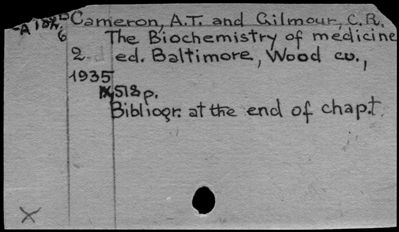 Cameron, A.T. and Gilmour, C.R.
6 The Biochemistry of medicine
2d ed. Baltimore, Wood co.,
1935
518p.
Bibliogr. at the end of chapt.
X